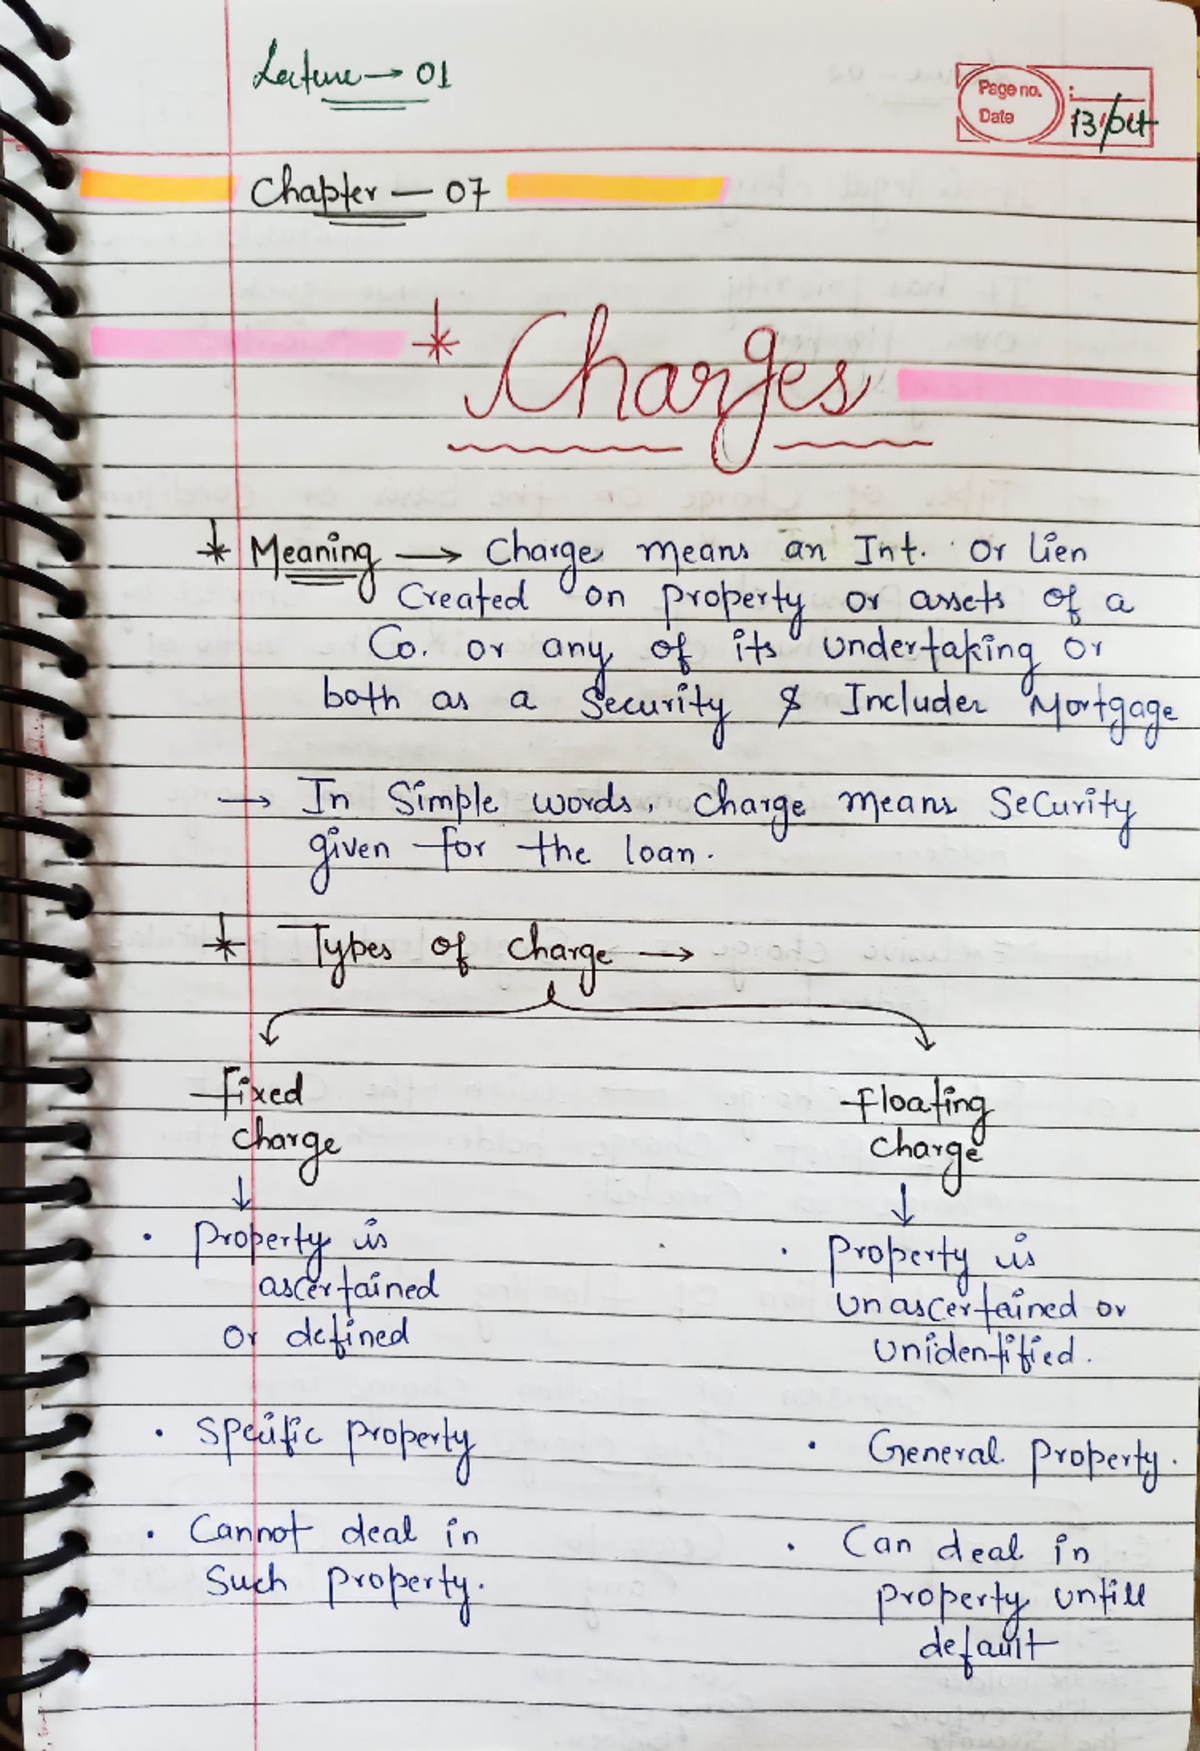 Lecture → 01
Page no. :
Date 13/oct
Chapter — 07
* Charges
* Meaning → Charge means an Int. or lien
Created on property or assets of a
Co. or any of its undertaking or
both as a Security & Includes Mortgage
→ In Simple words, Charge means Security
given for the loan.
* Types of Charge →
Fixed
Charge
↓
• Property is
ascertained
or defined
• Specific property
• Cannot deal in
Such property.
Floating
Charge
↓
• Property is
Unascertained or
Unidentified.
• General property.
• Can deal in
property untill
default